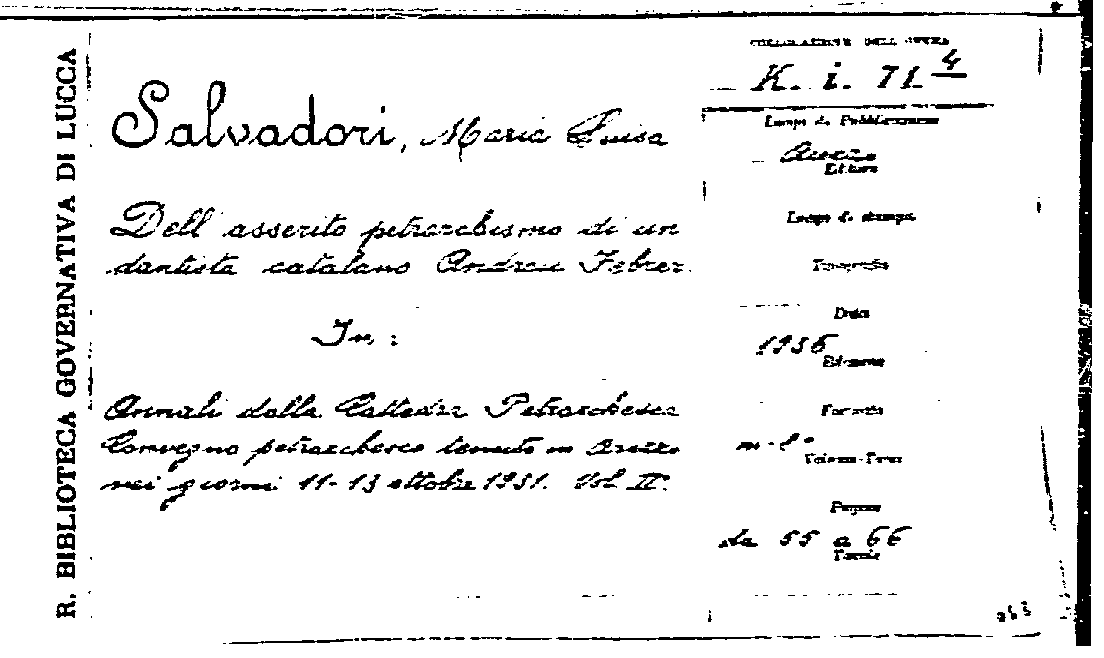 R. BIBLIOTECA GOVERNATIVA DI LUCCA
Salvadori, Maria Luisa
Dell'asserito petrarchismo di un
dantista catalano Andreu Febrer.
In:
Annali della Cattedra Petrarchesca
Convegno petrarchesco tenuto in Arezzo
nei giorni 11-13 ottobre 1931. Vol. II°.
COLLOCAZIONE DELL'OPERA
K. i. 71.4
Luogo di Pubblicazione
Arezzo
Editore
Luogo di stampa
Tipografia
Data
1936
Edizione
Formato
in-8°
Volume-Tomo
Pagine
da 55 a 66
Tavole